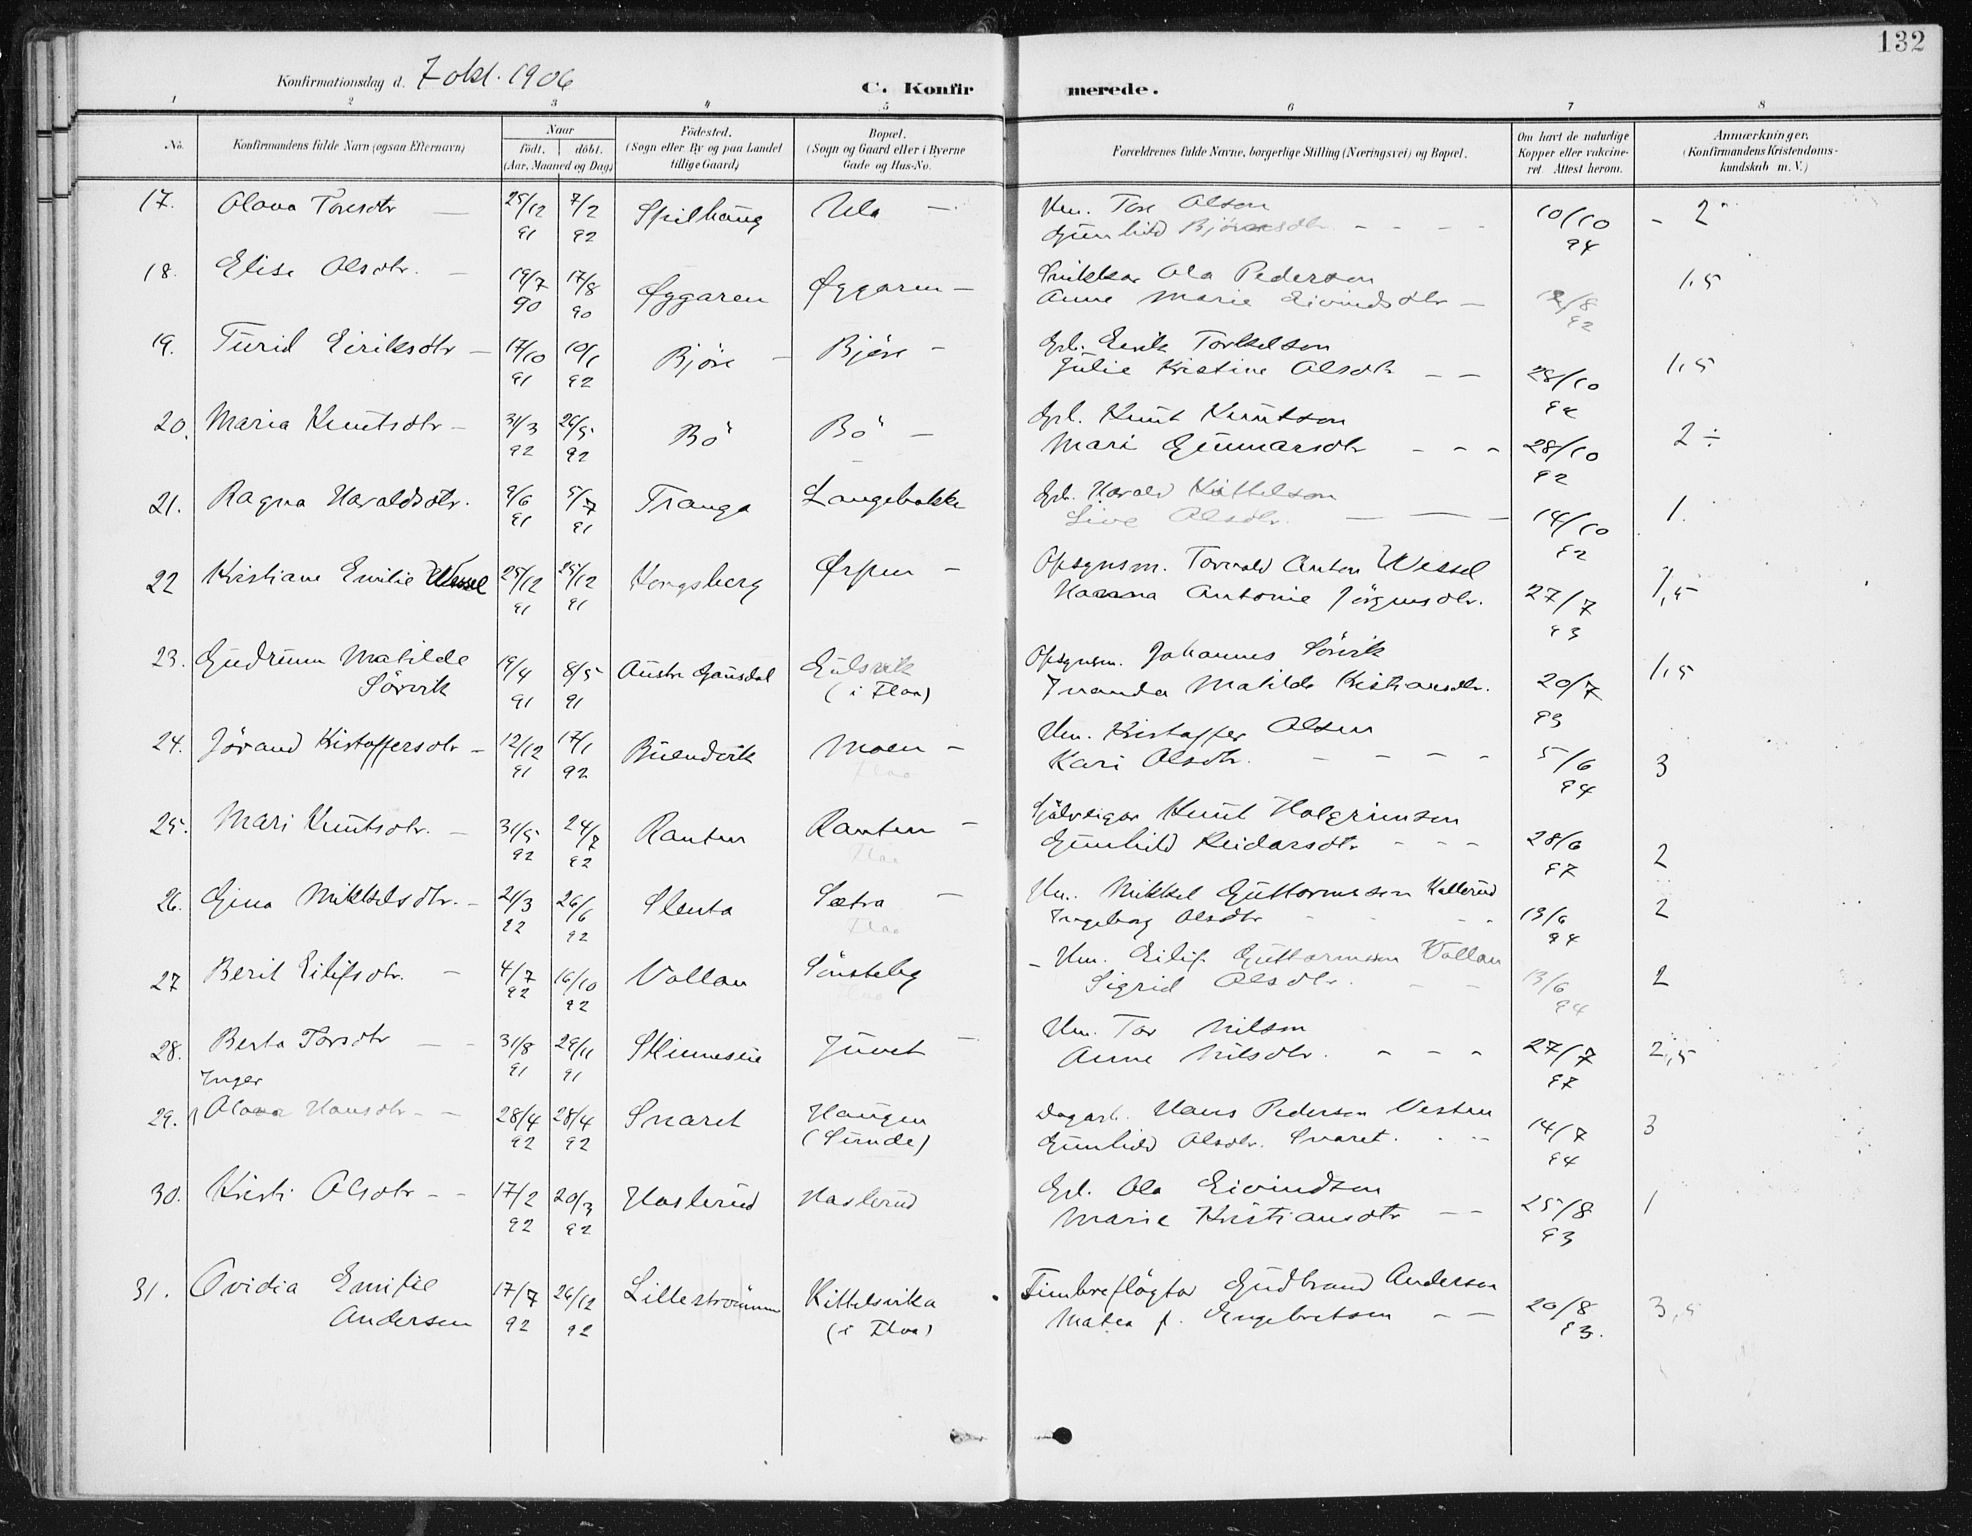 132
Konfirmationsdag d. 7 okt. 1906
C. Konfirmerede.
1 2 3 4 5 6 7 8
No.
Konfirmandens fulde Navn (ogsaa Efternavn)
Naar
födt. döbt.
(Aar, Maaned og Dag)
Födested.
(Sogn eller By og paa Landet
tillige Gaard)
Bopæl.
(Sogn og Gaard eller i Byerne
Gade og Hus-No.
Forældrenes fulde Navne, borgerlige Stilling (Næringsvei) og Bopæl.
Om havt de naturlige
Kopper eller vakcine-
ret Attest herom.
Anmærkninger.
(Konfirmandens Kristendoms-
kundskab m. V.)
17. Olava Toresdtr — 25/12 91 7/2 92 Spilhaug Ula — Hm. Tore Olson 10/10 94 2
Gunhild Bjørnsdtr.
18. Elise Olsdtr. — 19/7 90 17/8 90 Øygaren Øygaren — Snikkar Ola Pederson 1,5
Anne Marie Eivindsdtr — /8 92
19. Turid Eiriksdtr — 17/10 91 10/1 92 Bjøre — Bjøre — Gbr. Eirik Torkelson 1,5
Julie Kristine Olsdtr — — 28/10 92
20. Maria Knutsdtr — 31/3 92 26/5 92 Bö Bö — Gbr. Knut Knutson 2 ÷
Mari Gunnarsdtr - - - 28/10 92
21. Ragna Haraldsdtr. 9/6 91 5/7 91 Tranga Langebakke Gbr. Harald Kittelson 1.
Live Olsdtr. — — — 14/10 92
22 Kristiane Emilie Wessel 25/12 91 25/12 91 Kongsberg Ørpen — Opsynsm. Torvald Anton Wessel 1,5
Hanna Antonie Jörgensdtr. 27/7 93
23. Gudrun Matilde 19/4 91 8/5 91 Austre Gausdal Gulsvik Opsynsm. Johannes Sörvik 1,5
Sörvik (i Flaa) Matilde Kristiansdtr. 20/7 93
24. Jørand Kristoffersdtr — 12/12 91 17/1 92 Buendvik Moen — Hm. Kristoffer Olsen
Flaa Kari Olsdtr. - - - - 5/6 94 3
25. Mari Knutsdtr. — 31/5 92 24/7 92 Ranten Ranten — Sjølveigar Knut Holgrimson
Flaa Gunhild Reidarsdtr - - - 28/6 97 2
26. Gina Mikkelsdtr. — 21/3 92 26/6 92 Slenta Sætra — Hm. Mikkel Guttormson Kollerud
Flaa Ingeborg Olsdtr 13/6 94 2
27 Berit Eilifsdtr. — 4/7 92 16/10 92 Vollan Sønsteby — Hm. Eilif Guttormson Vollan
Sigrid Olsdtr. 13/6 94 2
28. Berta Torsdtr — - 31/8 91 29/11 91 Skinneseie Juvet — Hm. Tor Nilson
Anne Nilsdtr. - - - 27/7 97 2,5
Inger
29. Olava Hansdtr - — 28/4 92 28/4 92 Snaret Haugen Dagarb. Hans Pedersen Vesten
(Sunde) Gunhild Olsdtr. Snaret. 14/7 94 3
30. Kristi Olsdtr - - 17/2 92 20/3 92 Haslerud Haslerud Gbr. Ola Eivindson
Marie Kristiansdtr — — 25/8 93 1
31. Ovidia Emilie 17/7 92 26/12 92 Lilleströmmen Kittelsvika Timbrefløgtar Gudbrand Andersen
Andersen (i Flaa) Matea f. Engebretsen — — 20/8 93. 3,5